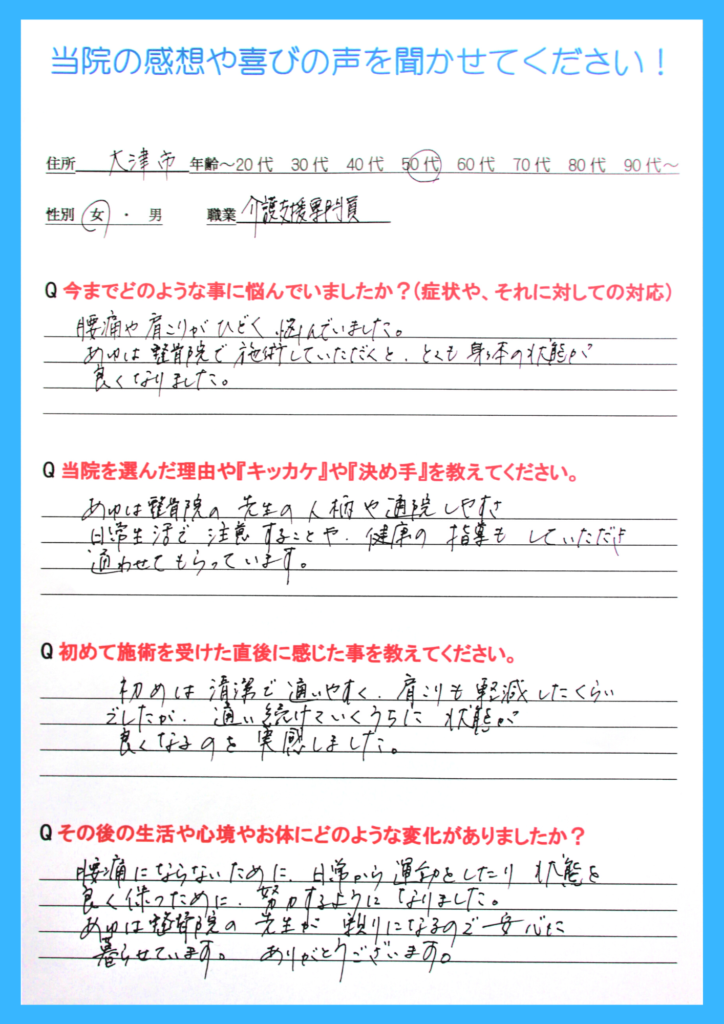 当院の感想や喜びの声を聞かせてください！
住所 大津市 年齢～20代 30代 40代 50代 60代 70代 80代 90代～
性別 女 ・ 男 職業 介護支援専門員
Q 今までどのような事に悩んでいましたか？（症状や、それに対しての対応）
腰痛や肩こりがひどく、悩んでいました。
あゆは整骨院で施術していただくと、とても身体の状態が
良くなりました。
Q 当院を選んだ理由や『キッカケ』や『決め手』を教えてください。
あゆは整骨院の先生の人柄や通院しやすさ
日常生活で注意することや、健康の指導もしていただき
通わせてもらっています。
Q 初めて施術を受けた直後に感じた事を教えてください。
初めは清潔で通いやすく、肩こりも軽減したくらい
でしたが、通い続けていくうちに状態が
良くなるのを実感しました。
Q その後の生活や心境やお体にどのような変化がありましたか？
腰痛にならないために、日常から運動をしたり状態を
良く保つために、努力するようになりました。
あゆは整骨院の先生が頼りになるので安心に
暮らせています。ありがとうございます。